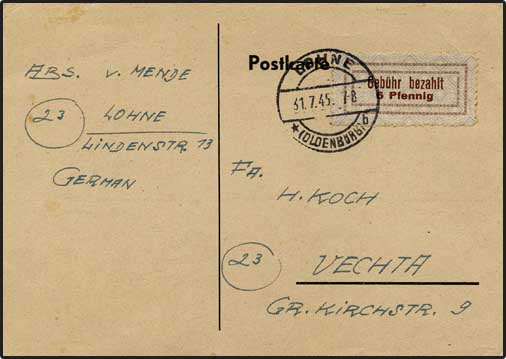 ABS. v. MENDE
23
LOHNE
LINDENSTR. 13
GERMAN
Postkarte
LOHNE
31.7.45. 7-8
* (OLDENBURG) b
Gebühr bezahlt
6 Pfennig
FA.
H. KOCH
23
VECHTA
GR. KIRCHSTR. 9